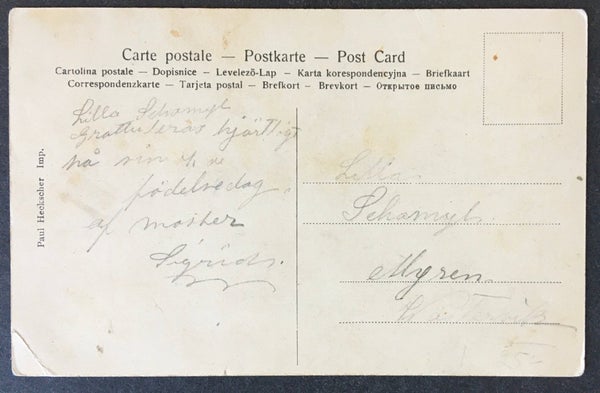 Carte postale — Postkarte — Post Card
Cartolina postale — Dopisnice — Levelező-Lap — Karta korespondencyjna — Briefkaart
Correspondenzkarte — Tarjeta postal — Brefkort — Brevkort — Открытое письмо
Paul Heckscher Imp.
Lilla Schamyl
Gratuleras hjärtligt
på sin
födelsedag.
af moster
Sigrid.
Lilla
Schamyl.
Myren.
Westervik